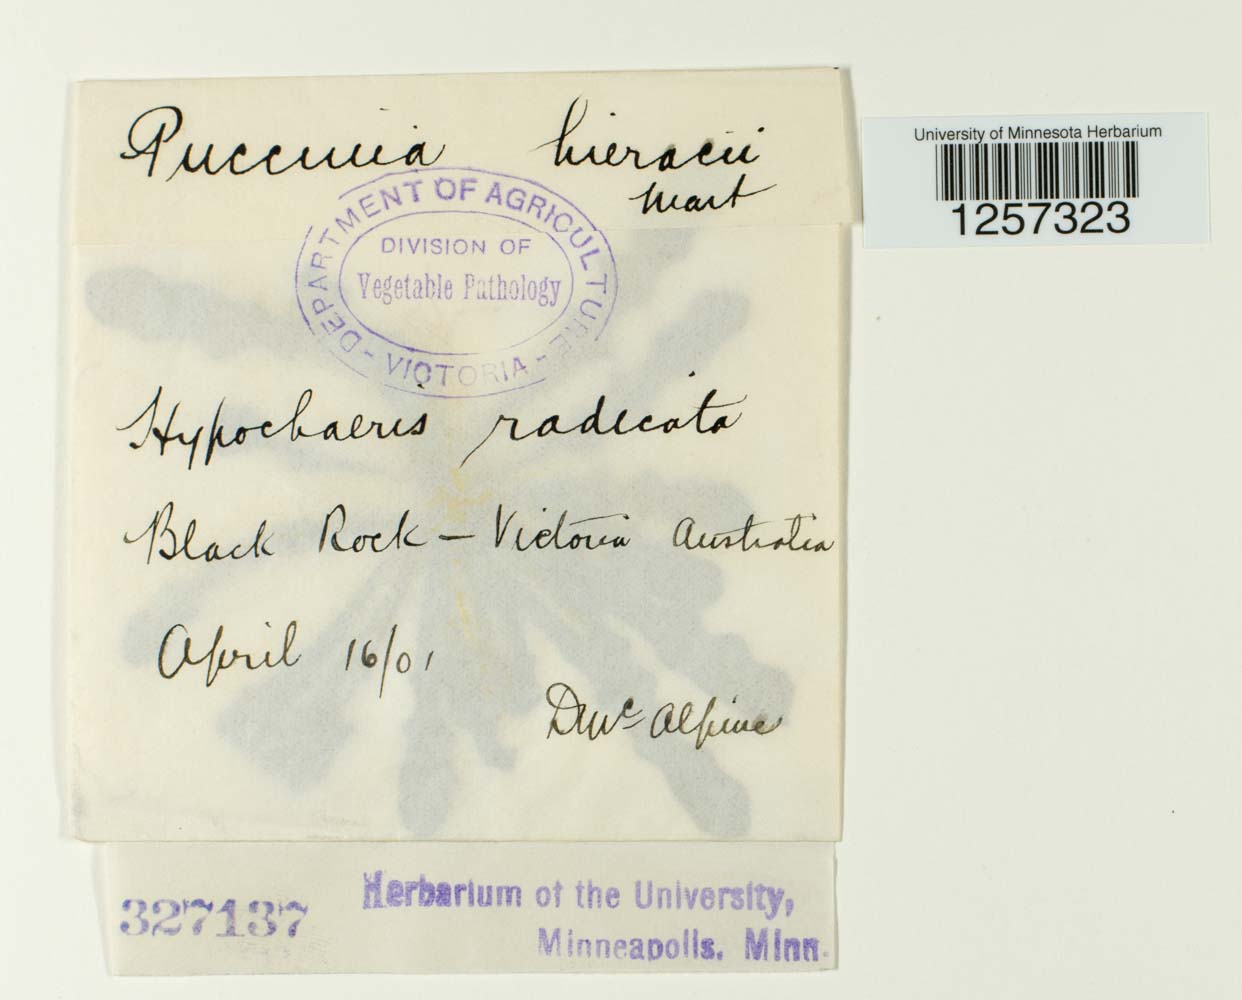 Puccinia hieracii
Mart
DEPARTMENT OF AGRICULTURE
DIVISION OF
Vegetable Pathology
- VICTORIA -
Hypochaeris radicata
Black Rock – Victoria Australia
April 16/01
D McAlpine
327137
Herbarium of the University,
Minneapolis. Minn.
University of Minnesota Herbarium
1257323